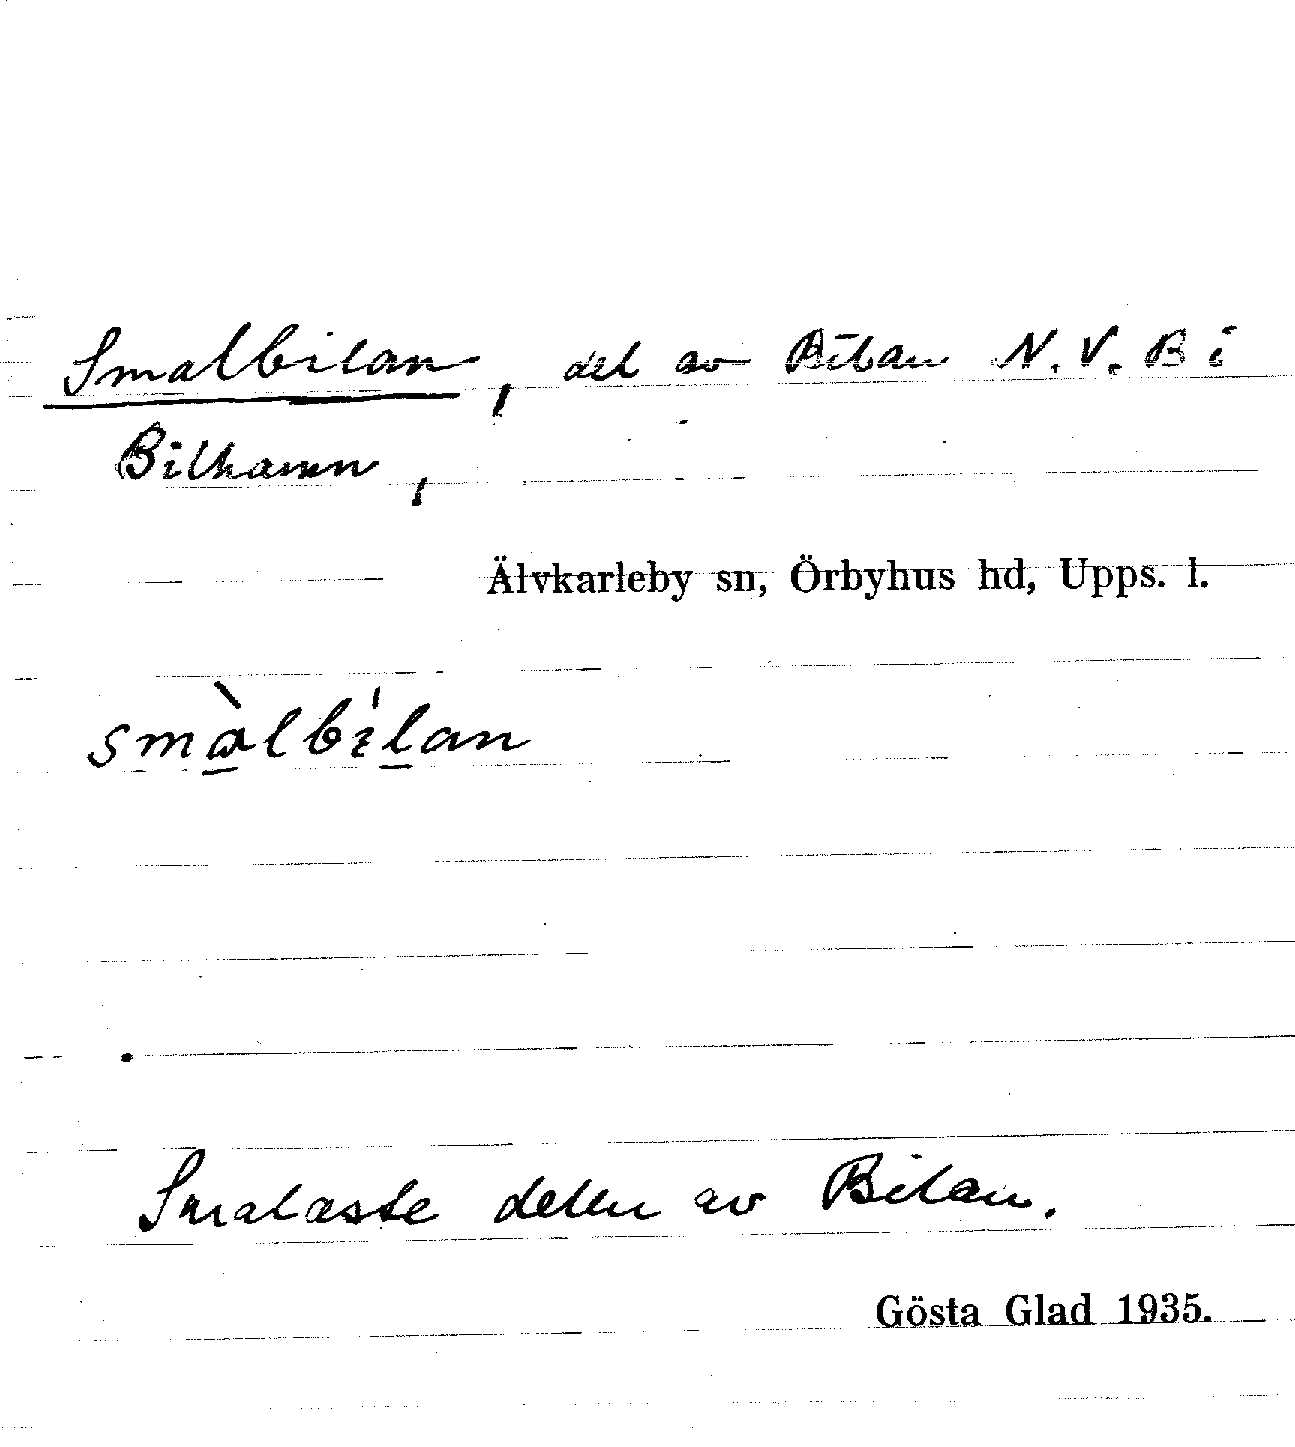 Smalbilan, del av Bilan N.V. B i
Bilhamn,
Älvkarleby sn, Örbyhus hd, Upps. l.
smàlbìlan
Smalaste delen av Bilan.
Gösta Glad 1935.